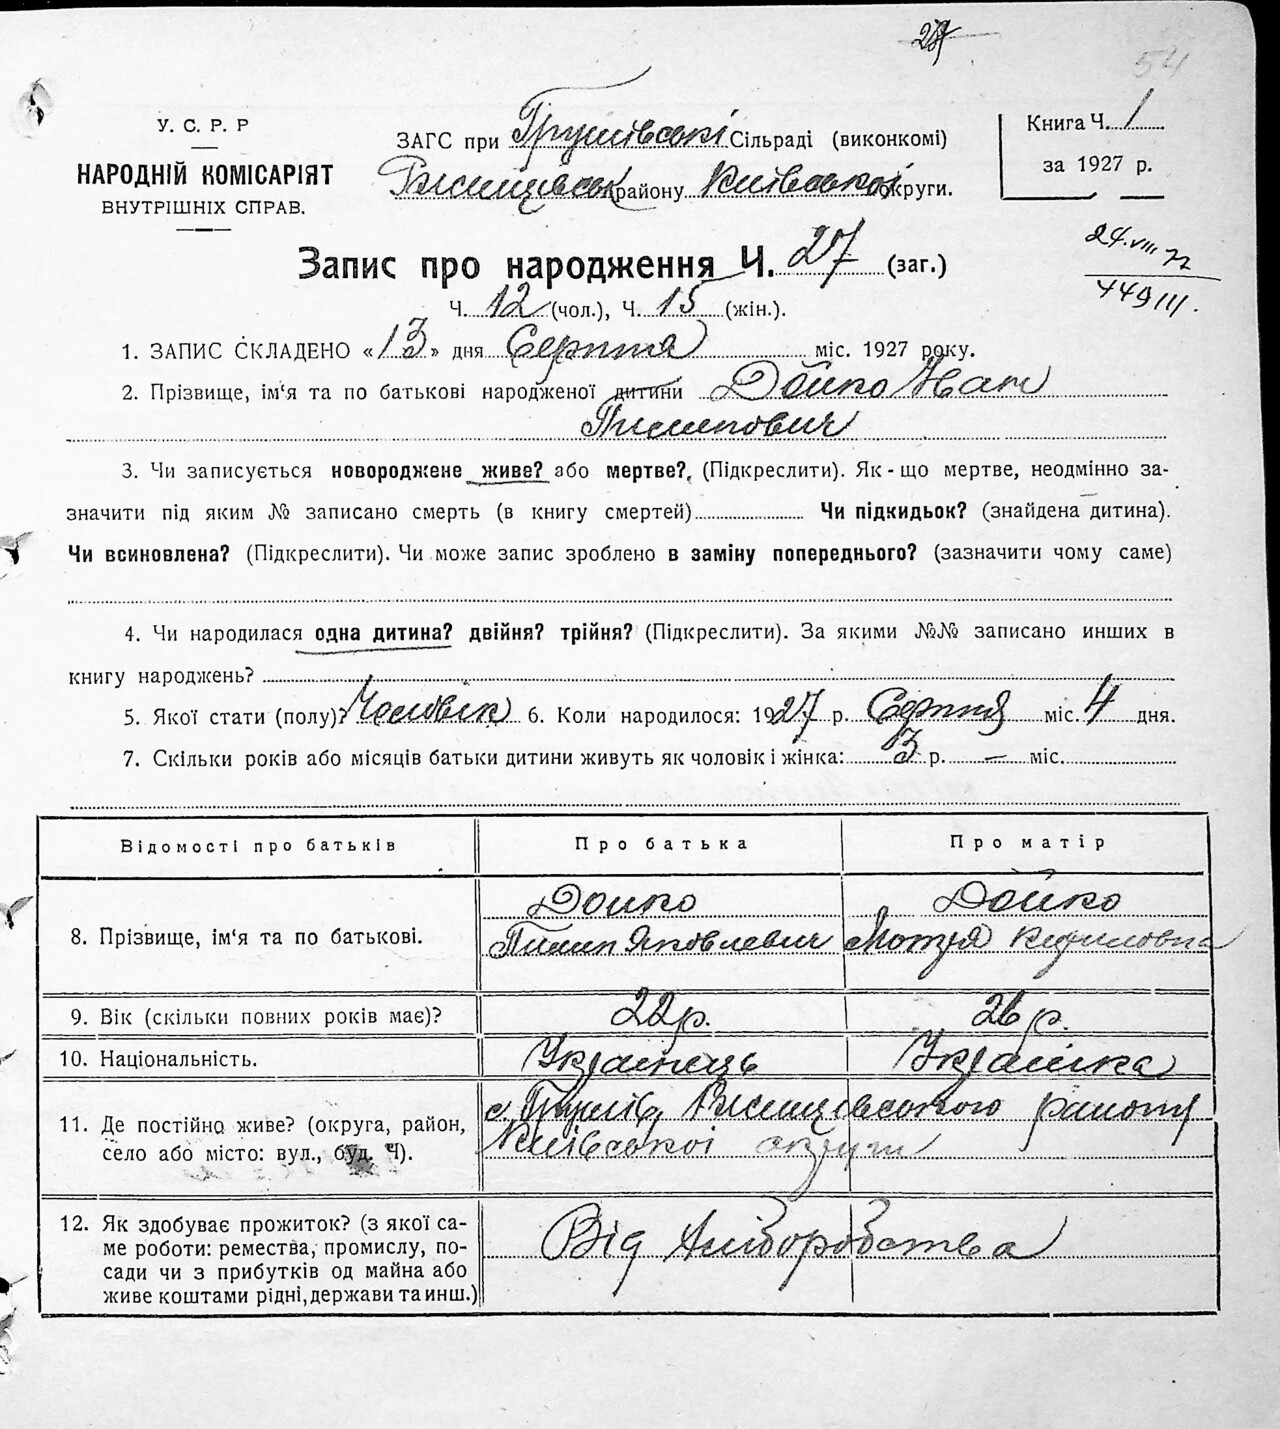 287
54
У. С. Р. Р
НАРОДНІЙ КОМІСАРІЯТ
ВНУТРІШНІХ СПРАВ.
ЗАГС при Грушівські Сільраді (виконкомі)
Ржищівськ району Київської округи.
Книга Ч. 1
за 1927 р.
Запис про народження Ч. 27 (заг.)
24.VIII 77
449III.
Ч. 12 (чол.), Ч. 15 (жін.).
1. ЗАПИС СКЛАДЕНО «13» дня Серпня міс. 1927 року.
2. Прізвище, ім'я та по батькові народженої дитини Дойко Іван
Пилипович
3. Чи записується новороджене живе? або мертве? (Підкреслити). Як-що мертве, неодмінно за-
значити під яким № записано смерть (в книгу смертей) Чи підкидьок? (знайдена дитина).
Чи всиновлена? (Підкреслити). Чи може запис зроблено в заміну попереднього? (зазначити чому саме)
4. Чи народилася одна дитина? двійня? трійня? (Підкреслити). За якими №№ записано инших в
книгу народжень?
5. Якої стати (полу)? Чоловік 6. Коли народилося: 1927 р. Серпня міс. 4 дня.
7. Скільки років або місяців батьки дитини живуть як чоловік і жінка: 3 р. — міс.
Відомості про батьків Про батька Про матір
8. Прізвище, ім'я та по батькові. Дойко Дойко
Пилип Яковлевич Мотря Кириловна
9. Вік (скільки повних років має)? 22 р. 26 р.
10. Національність. Українець Українка
11. Де постійно живе? (округа, район, село або місто: вул., буд. Ч). с. Грушів, Ржищівського району
Київської округи
12. Як здобуває прожиток? (з якої са-
ме роботи: ремества, промислу, по-
сади чи з прибутків од майна або
живе коштами рідні, держави та инш.)
Від хліборобства